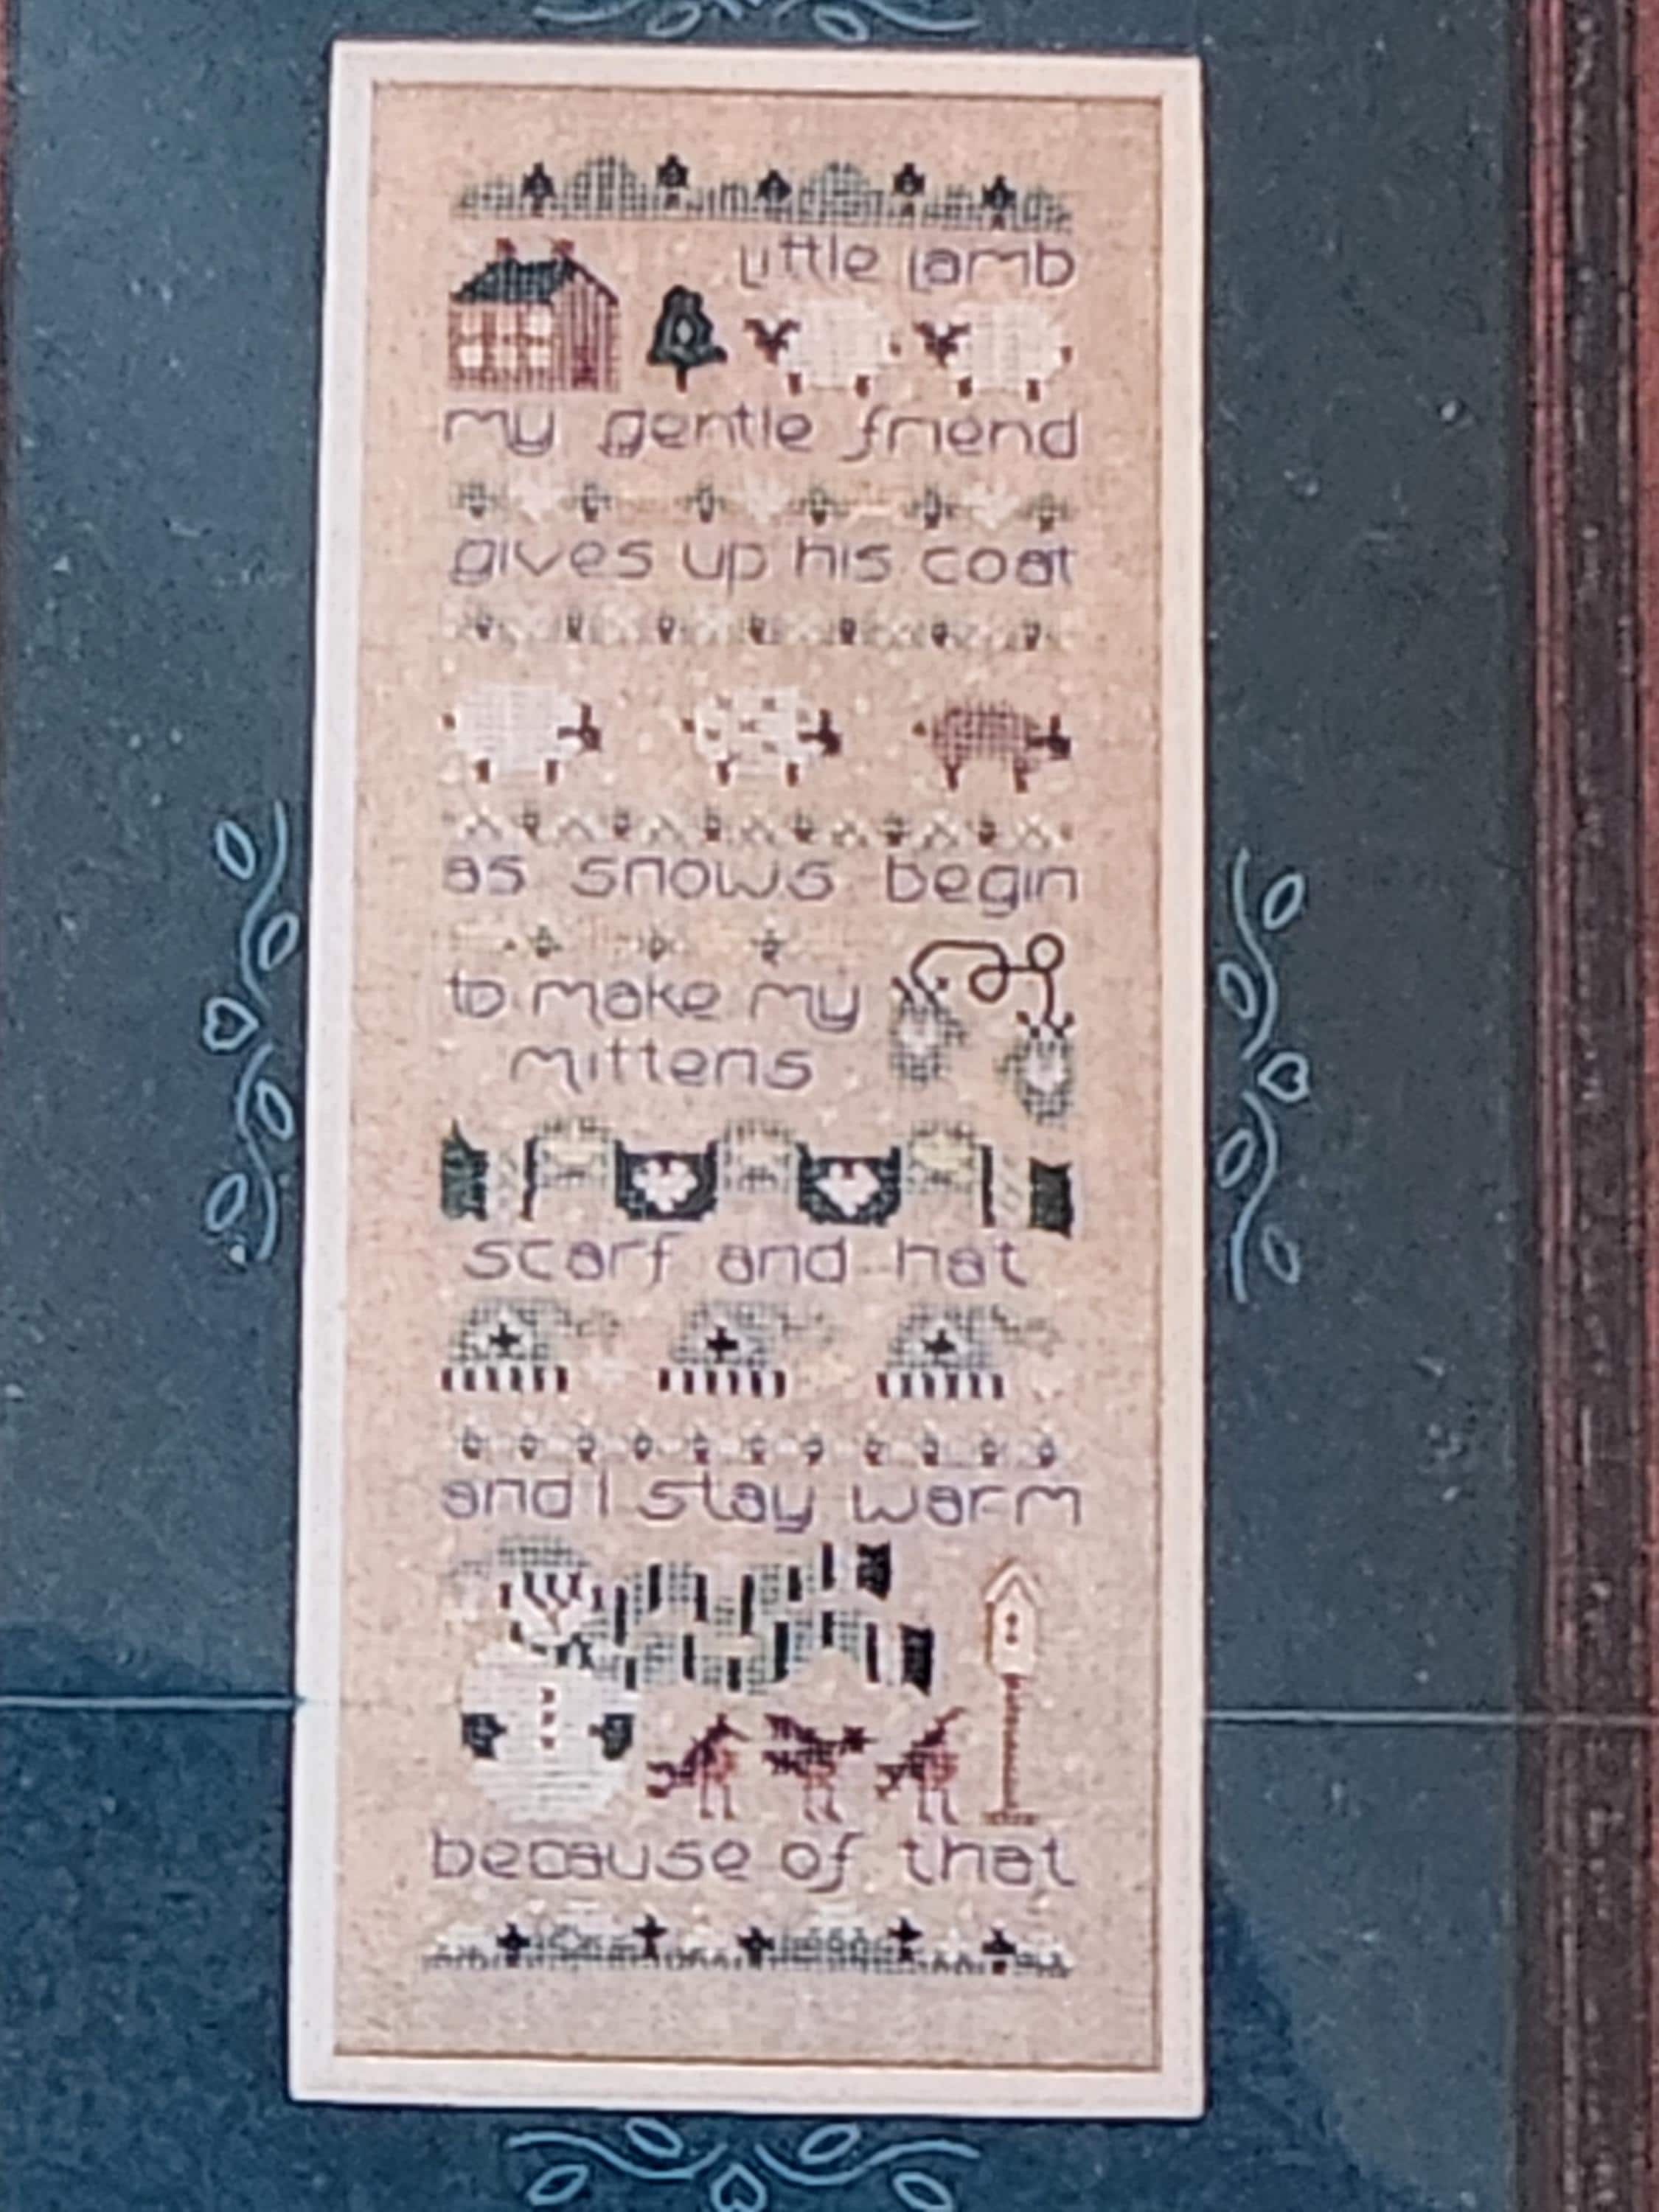 Little Lamb
my gentle friend
gives up his coat
as snows begin
to make my
mittens
scarf and hat
and I stay warm
because of that